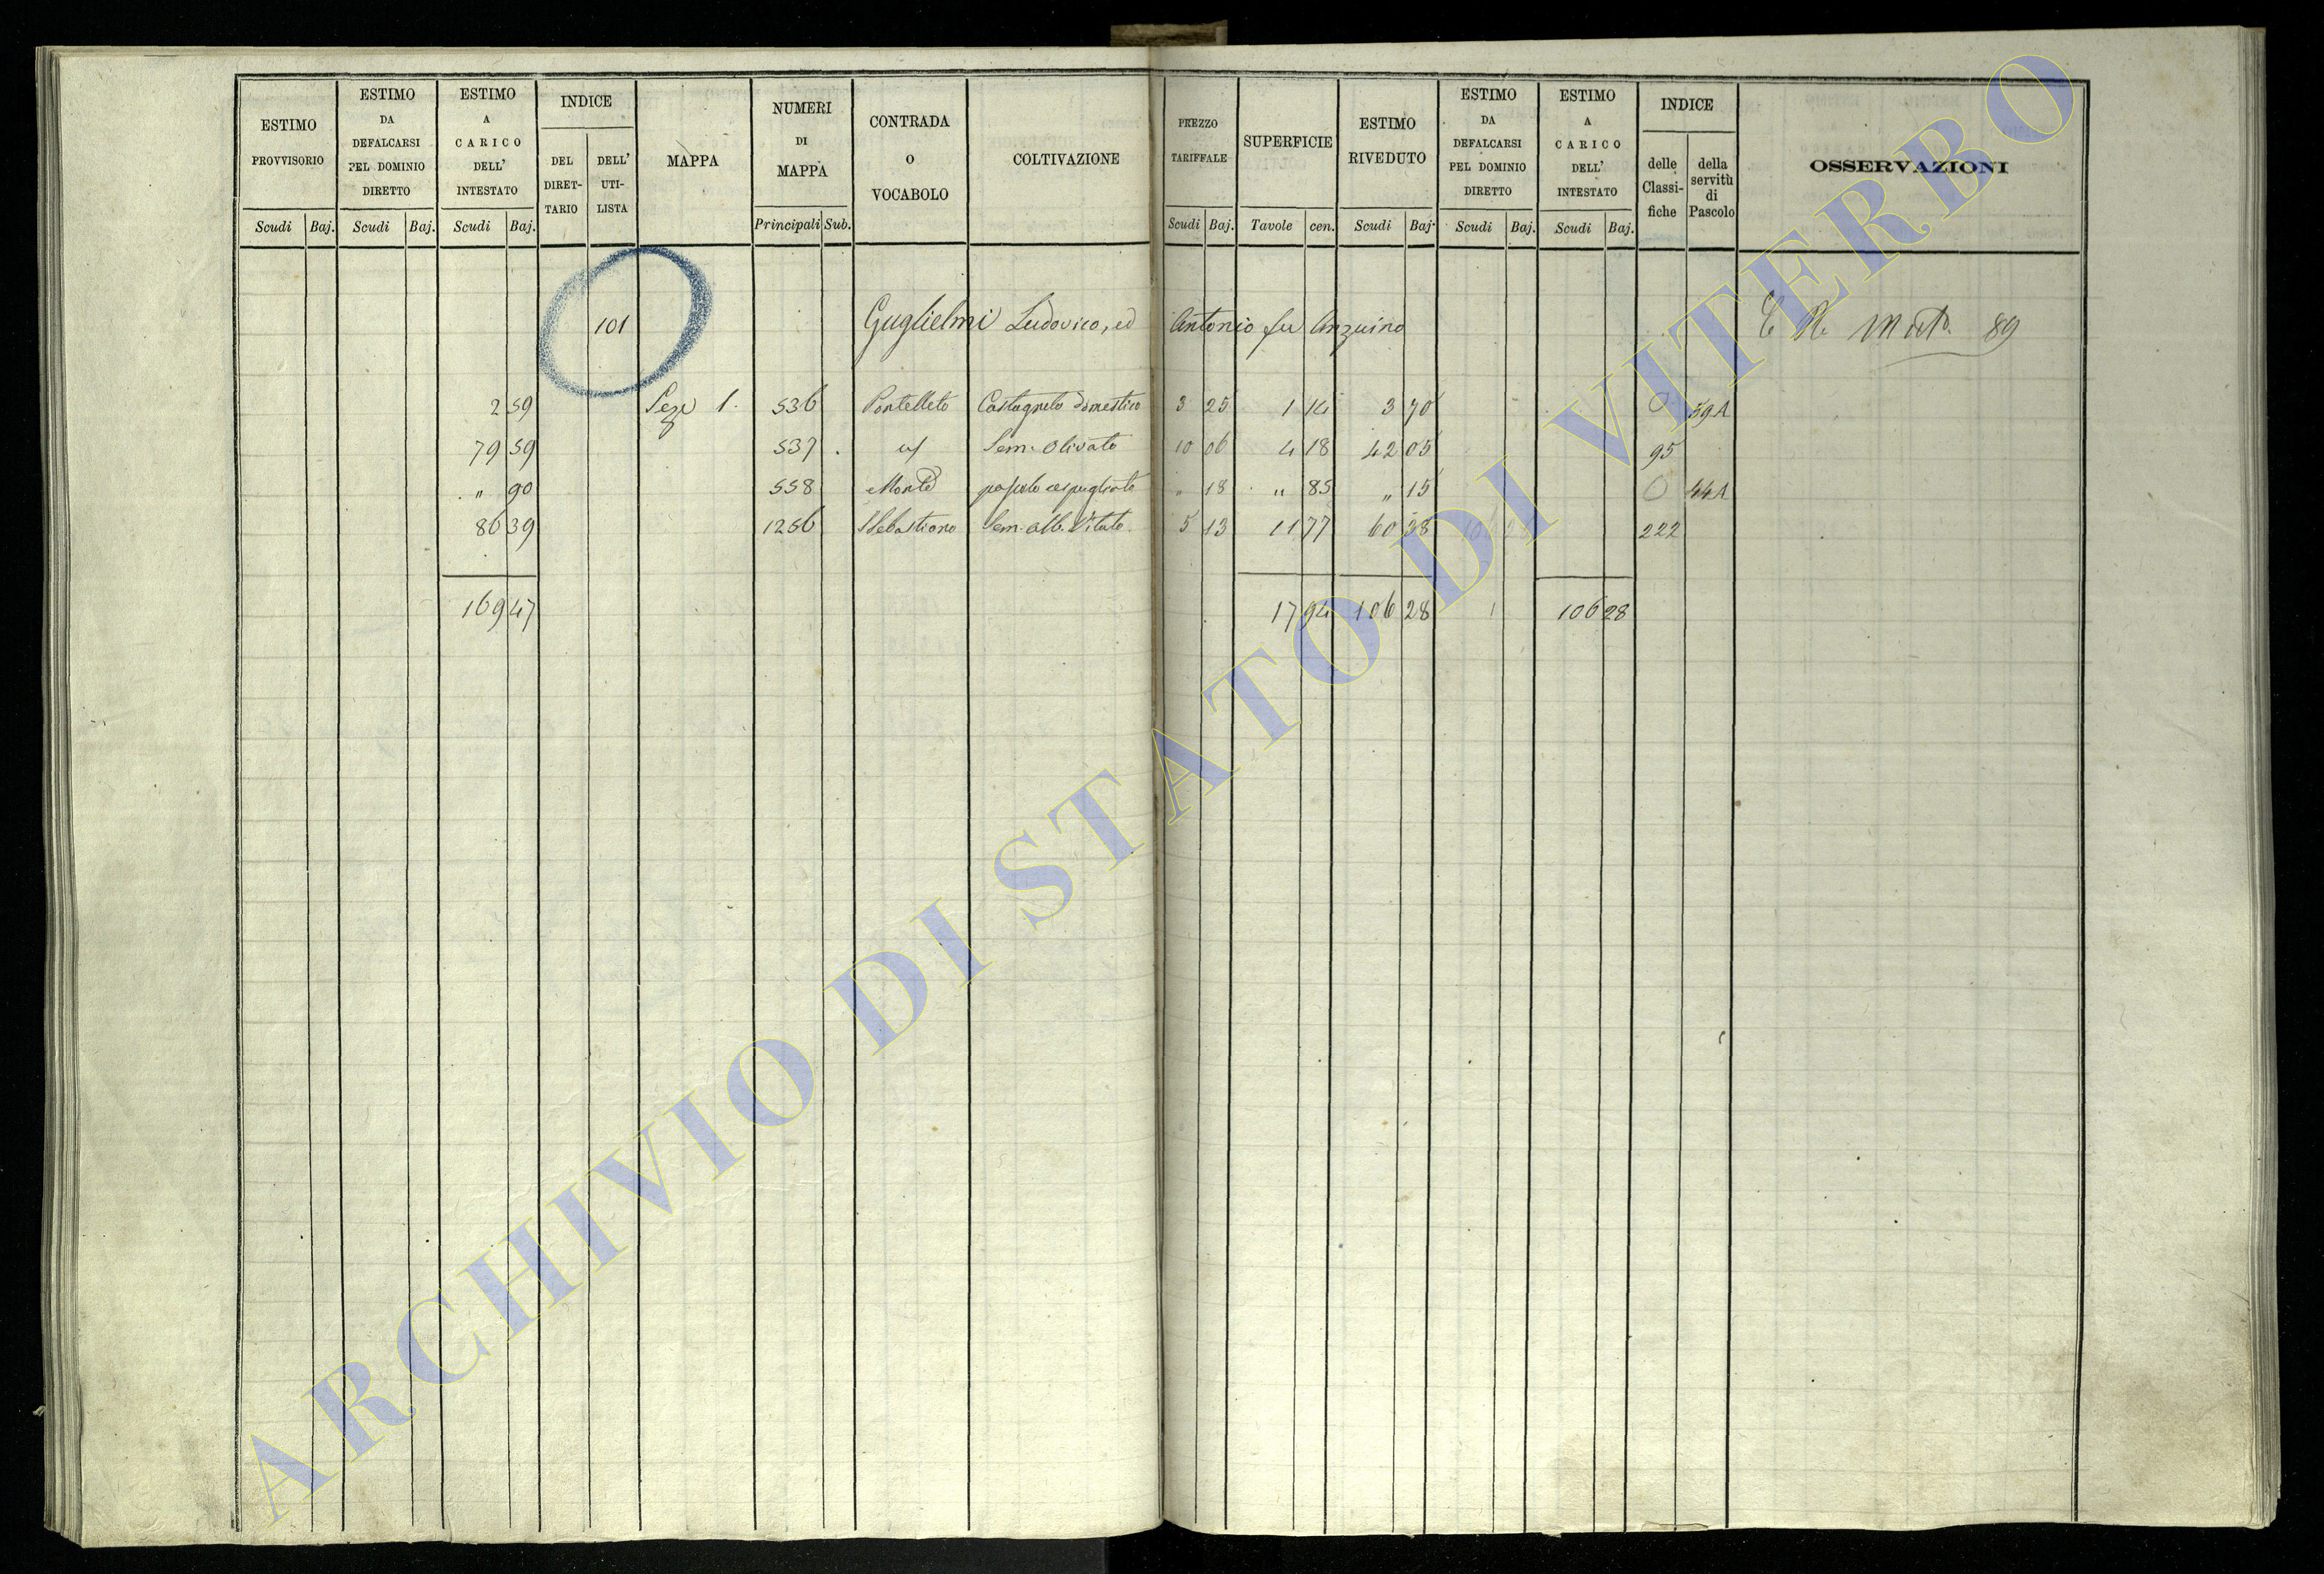 ESTIMO PROVVISORIO Scudi Baj.
ESTIMO DA DEFALCARSI PEL DOMINIO DIRETTO Scudi Baj.
ESTIMO A CARICO DELL' INTESTATO Scudi Baj.
INDICE DEL DIRET- TARIO DELL' UTI- LISTA
MAPPA
NUMERI DI MAPPA Principali Sub.
CONTRADA O VOCABOLO
COLTIVAZIONE
PREZZO TARIFFALE Scudi Baj.
SUPERFICIE Tavole cen.
ESTIMO RIVEDUTO Scudi Baj.
ESTIMO DA DEFALCARSI PEL DOMINIO DIRETTO Scudi Baj.
ESTIMO A CARICO DELL' INTESTATO Scudi Baj.
INDICE delle Classi- fiche della servitù di Pascolo
OSSERVAZIONI
101 Guglielmi Ludovico, ed Antonio fu Anzuino 89
2 59 1. 536 Castagneto domestico 3 25 1 14 3 70 0 59A
79 59 537 Sem. Olivato 10 06 4 18 42 05 95
" 90 558 Monte pascolo cespugliato " 18 " 85 " 15 0 44A
86 39 1256 S Sebastiano Sem. alb. Vitato 5 13 11 77 60 38 106 28 222
169 47 17 94 106 28 106 28
ARCHIVIO DI STATO DI VITERBO